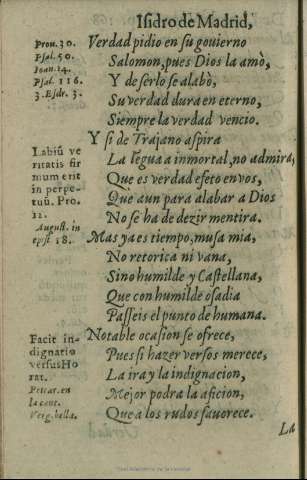 Isidro de Madrid,
Prou. 30.
Psal. 50.
Ioan. 14.
Psal. 116.
3. Esdr. 3.
Verdad pidio en su gouierno
Salomon, pues Dios la amò,
Y de serlo se alabò,
Su verdad dura en eterno,
Siempre la verdad vencio.
Labiũ ve
ritatis fir
mum erit
in perpe-
tuũ. Pro.
12.
August. in
epist 18.
Y si de Trajano aspira
La legua a inmortal, no admira,
Que es verdad efeto en vos,
Que aun para alabar a Dios
No se ha de dezir mentira.
Mas ya es tiempo, musa mia,
No retorica ni vana,
Sino humilde y Castellana,
Que con humilde osadia
Passeis el punto de humana.
Facit in-
dignatio
versus Ho
rat.
Petrar. en
la cant.
Verg. bella.
Notable ocasion se ofrece,
Pues si hazer versos merece,
La ira y la indignacion,
Mejor podra la aficion,
Que a los rudos fauorece.
La